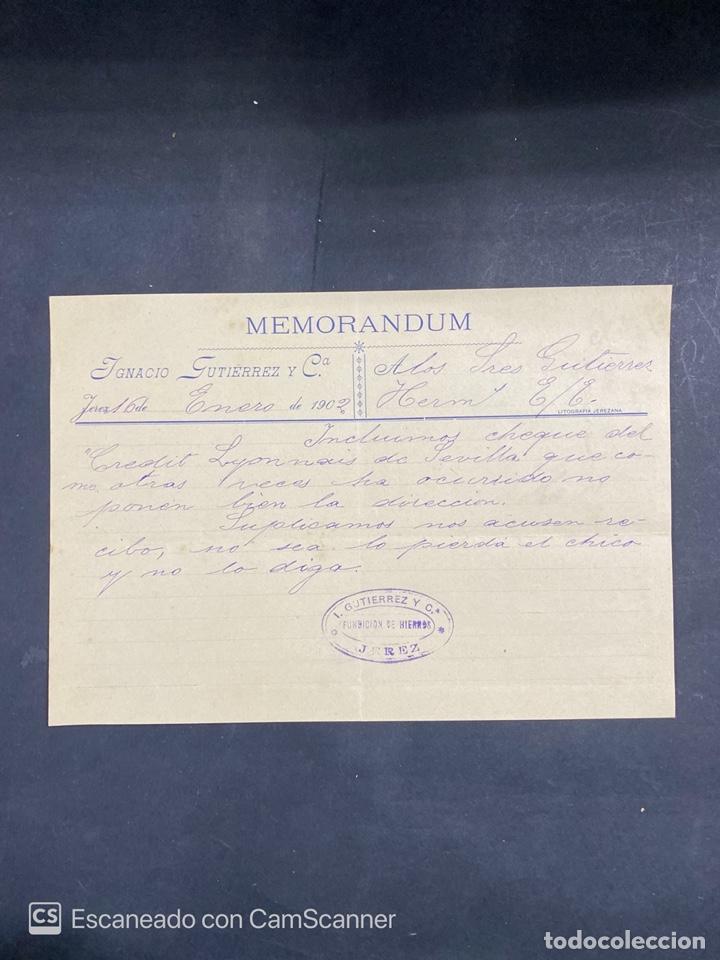 MEMORANDUM
Ignacio Gutiérrez y Cª
Jerez 16 de Enero de 1902
A los Sres Gutierrez
Hermˢ E/C.
LITOGRAFIA JEREZANA
Incluimos cheque del
Credit Lyonnais de Sevilla que co-
mo otras veces ha ocurrido no
ponen bien la direccion.
Suplicamos nos acusen re-
cibo, no sea lo pierda el chico
y no lo diga.
I. GUTIERREZ Y Cª
FUNDICION DE HIERROS
JEREZ
CS Escaneado con CamScanner
todocoleccion